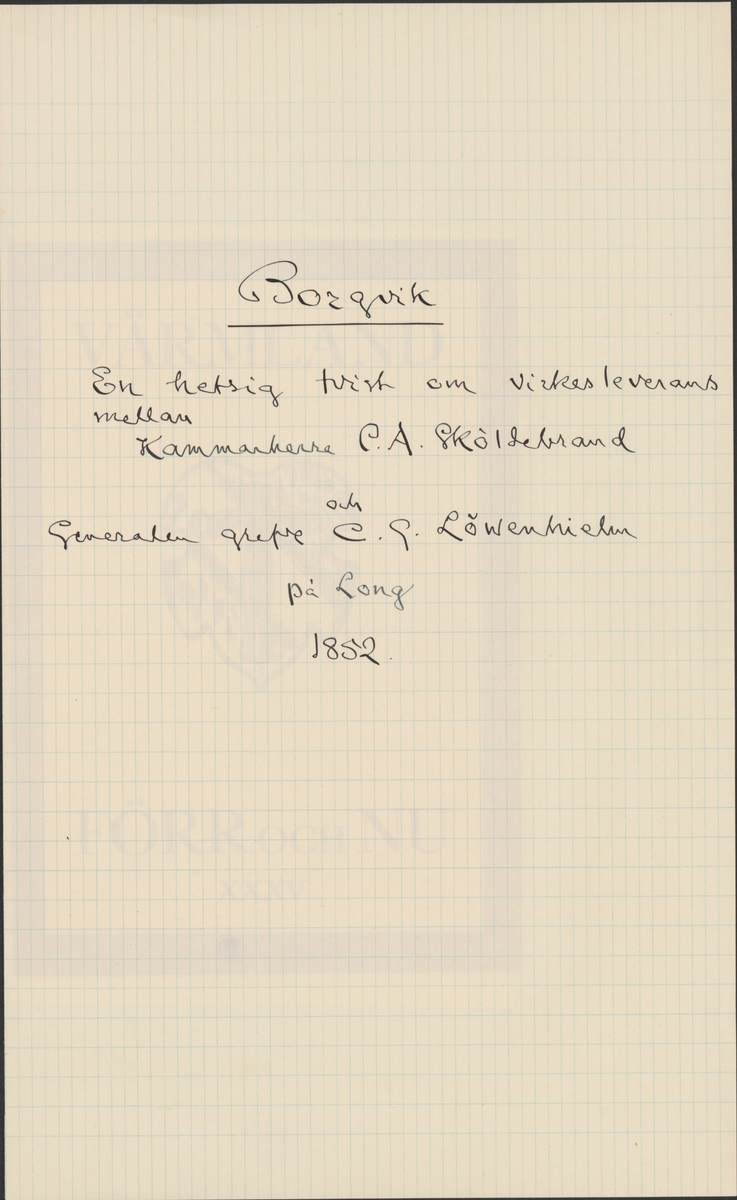 Borgvik
En hetsig tvist om virkesleverans
mellan
Kammarherre C. A. Sköldebrand
och
Generalen greve C. G. Löwenhielm
på Long
1852.
VÄRMLAND
FÖRR OCH NU
XXXV